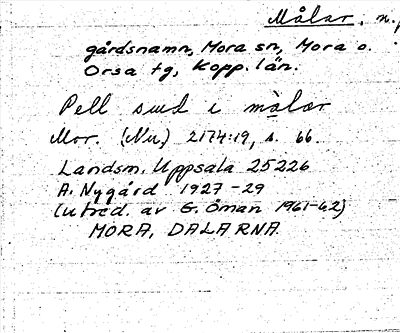 Målar, n.
gårdsnamn, Mora sn, Mora o.
Orsa tg, Kopp. län.
Pell smd i målar
Mor. (Nu.) 2174:19, s. 66.
Landsm. Uppsala 25226
A. Nygård 1927-29
(utred. av G. Öman 1961-62)
MORA, DALARNA